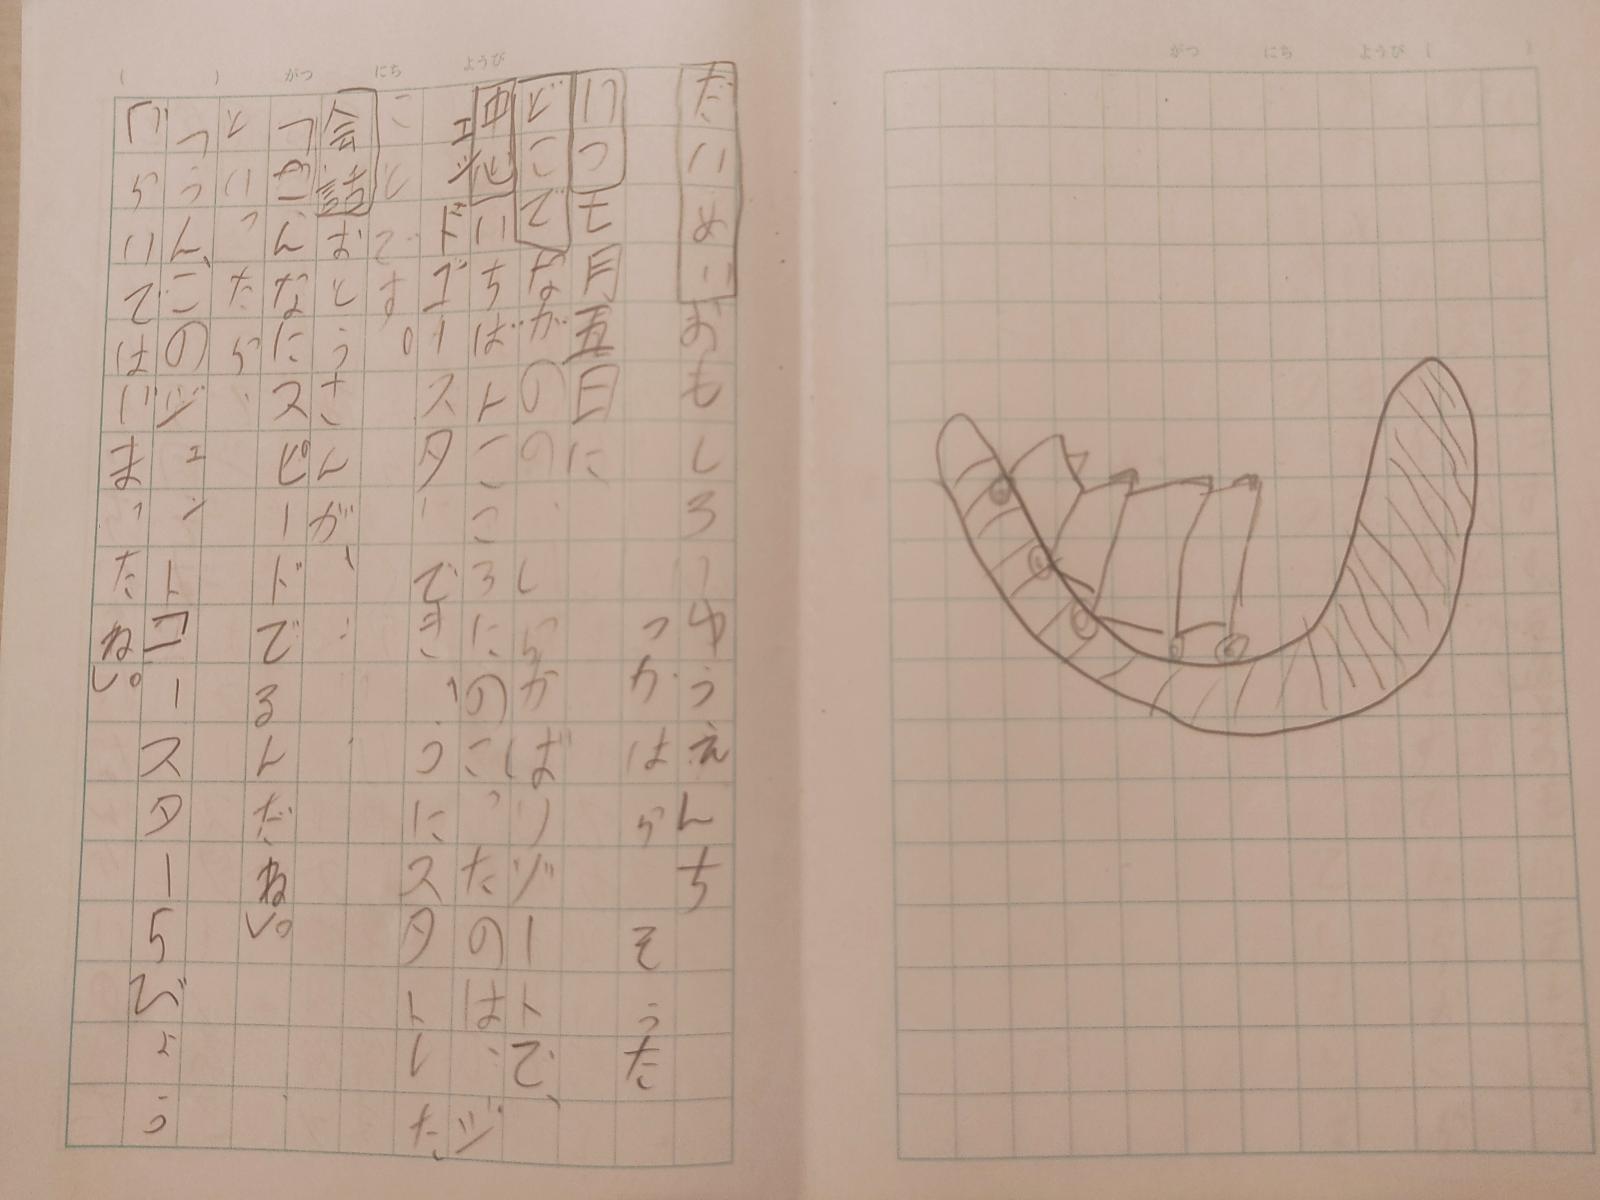 だいめいおもしろいゆうえんち
つかはらそうた
いつ七月五日に
どこでながのの、しらかばりゾートで、
中心いちばんこころにのこったのは、ジ
ェッドゴースターできゅうにスタトした
ことです。
会話おとうさんが、
「こんなにスピードでるんだね」。
といったら、
「うん、このジェントコースター5びょう
ぐらいではじまったね」。
がつ にち ようび
がつ にち ようび